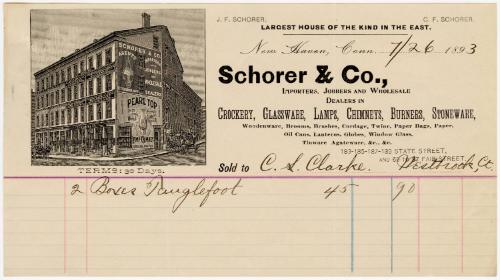 J. F. SCHORER. C. F. SCHORER.
LARGEST HOUSE OF THE KIND IN THE EAST.
New Haven, Conn. 7/26 1893
Schorer & Co.,
IMPORTERS, JOBBERS AND WHOLESALE
DEALERS IN
CROCKERY, GLASSWARE, LAMPS, CHIMNEYS, BURNERS, STONEWARE,
Woodenware, Brooms, Brushes, Cordage, Twine, Paper Bags, Paper,
Oil Cans, Lanterns, Globes, Window Glass,
Tinware Agateware, &c., &c.
183-185-187-189 STATE STREET,
FAIR STREET,
Sold to C. S. Clarke. Westbrook, Ct.
SCHORER & CO.
PEARL TOP
TERMS: 30 Days.
2 Boxes Tanglefoot 45 90